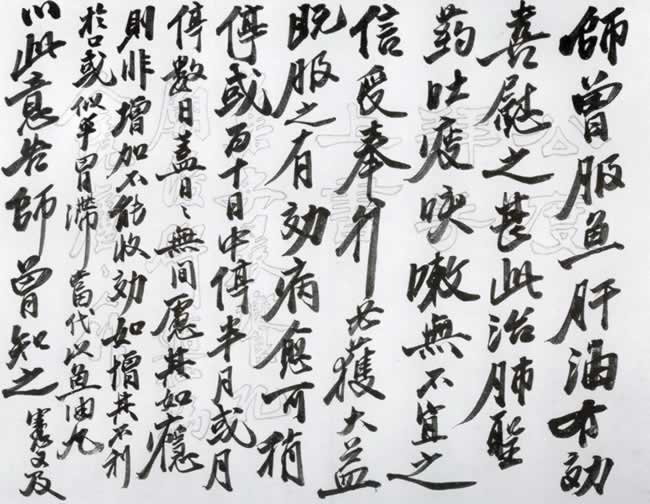 師曾服魚肝油有効
喜慰之甚此治肺聖
药吐痰咳嗽無不宜之
信受奉行必獲大益
既服之有効病愈可稍
停或百十日中停半月或月
停數日蓋日〻無間慮其如癮
則非增加不能收効如憎其不利
於口或似乎胃滯當代以魚油丸
以此意告師曾知之 憲又及